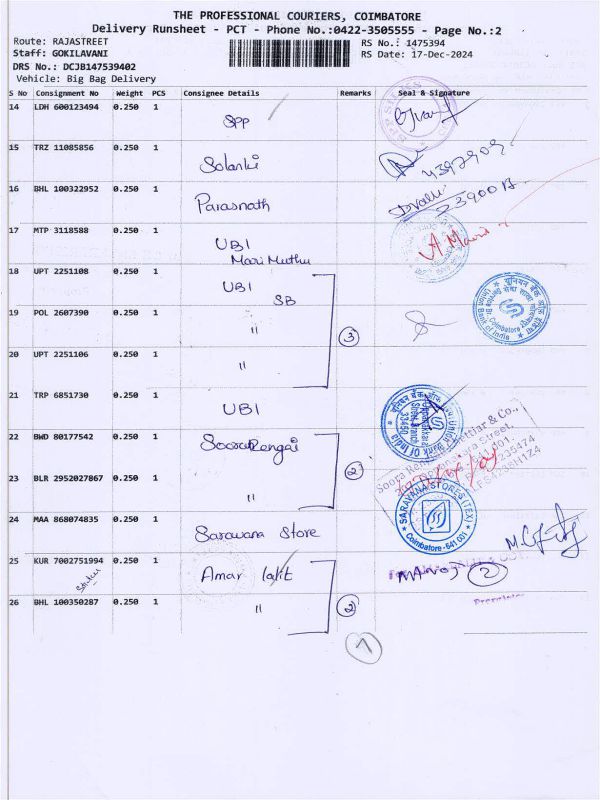 THE PROFESSIONAL COURIERS, COIMBATORE
Delivery Runsheet - PCT - Phone No.:0422-3505555 - Page No.:2
Route: RAJASTREET
RS No.: 1475394
Staff: GOKILAVANI
RS Date: 17-Dec-2024
DRS No.: DCJB147539402
Vehicle: Big Bag Delivery
S No Consignment No Weight PCS Consignee Details Remarks Seal & Signature
14 LDH 600123494 0.250 1 SPP
15 TRZ 11085856 0.250 1 Solanki
16 BHL 100322952 0.250 1 Parasnath
17 MTP 3118588 0.250 1 UBI
Mari Muthu
18 UPT 2251108 0.250 1 UBI
SB
19 POL 2607390 0.250 1 "
3
20 UPT 2251106 0.250 1 "
21 TRP 6851730 0.250 1 UBI
22 BWD 80177542 0.250 1 Soora Rengai
2
23 BLR 2952027867 0.250 1 "
24 MAA 868074835 0.250 1 Saravana Store
SARAVANA STORES (TEX)
Coimbatore - 641 001
25 KUR 7002751994 0.250 1 Amar lalit
MANOJ 2
26 BHL 100350287 0.250 1 "
2